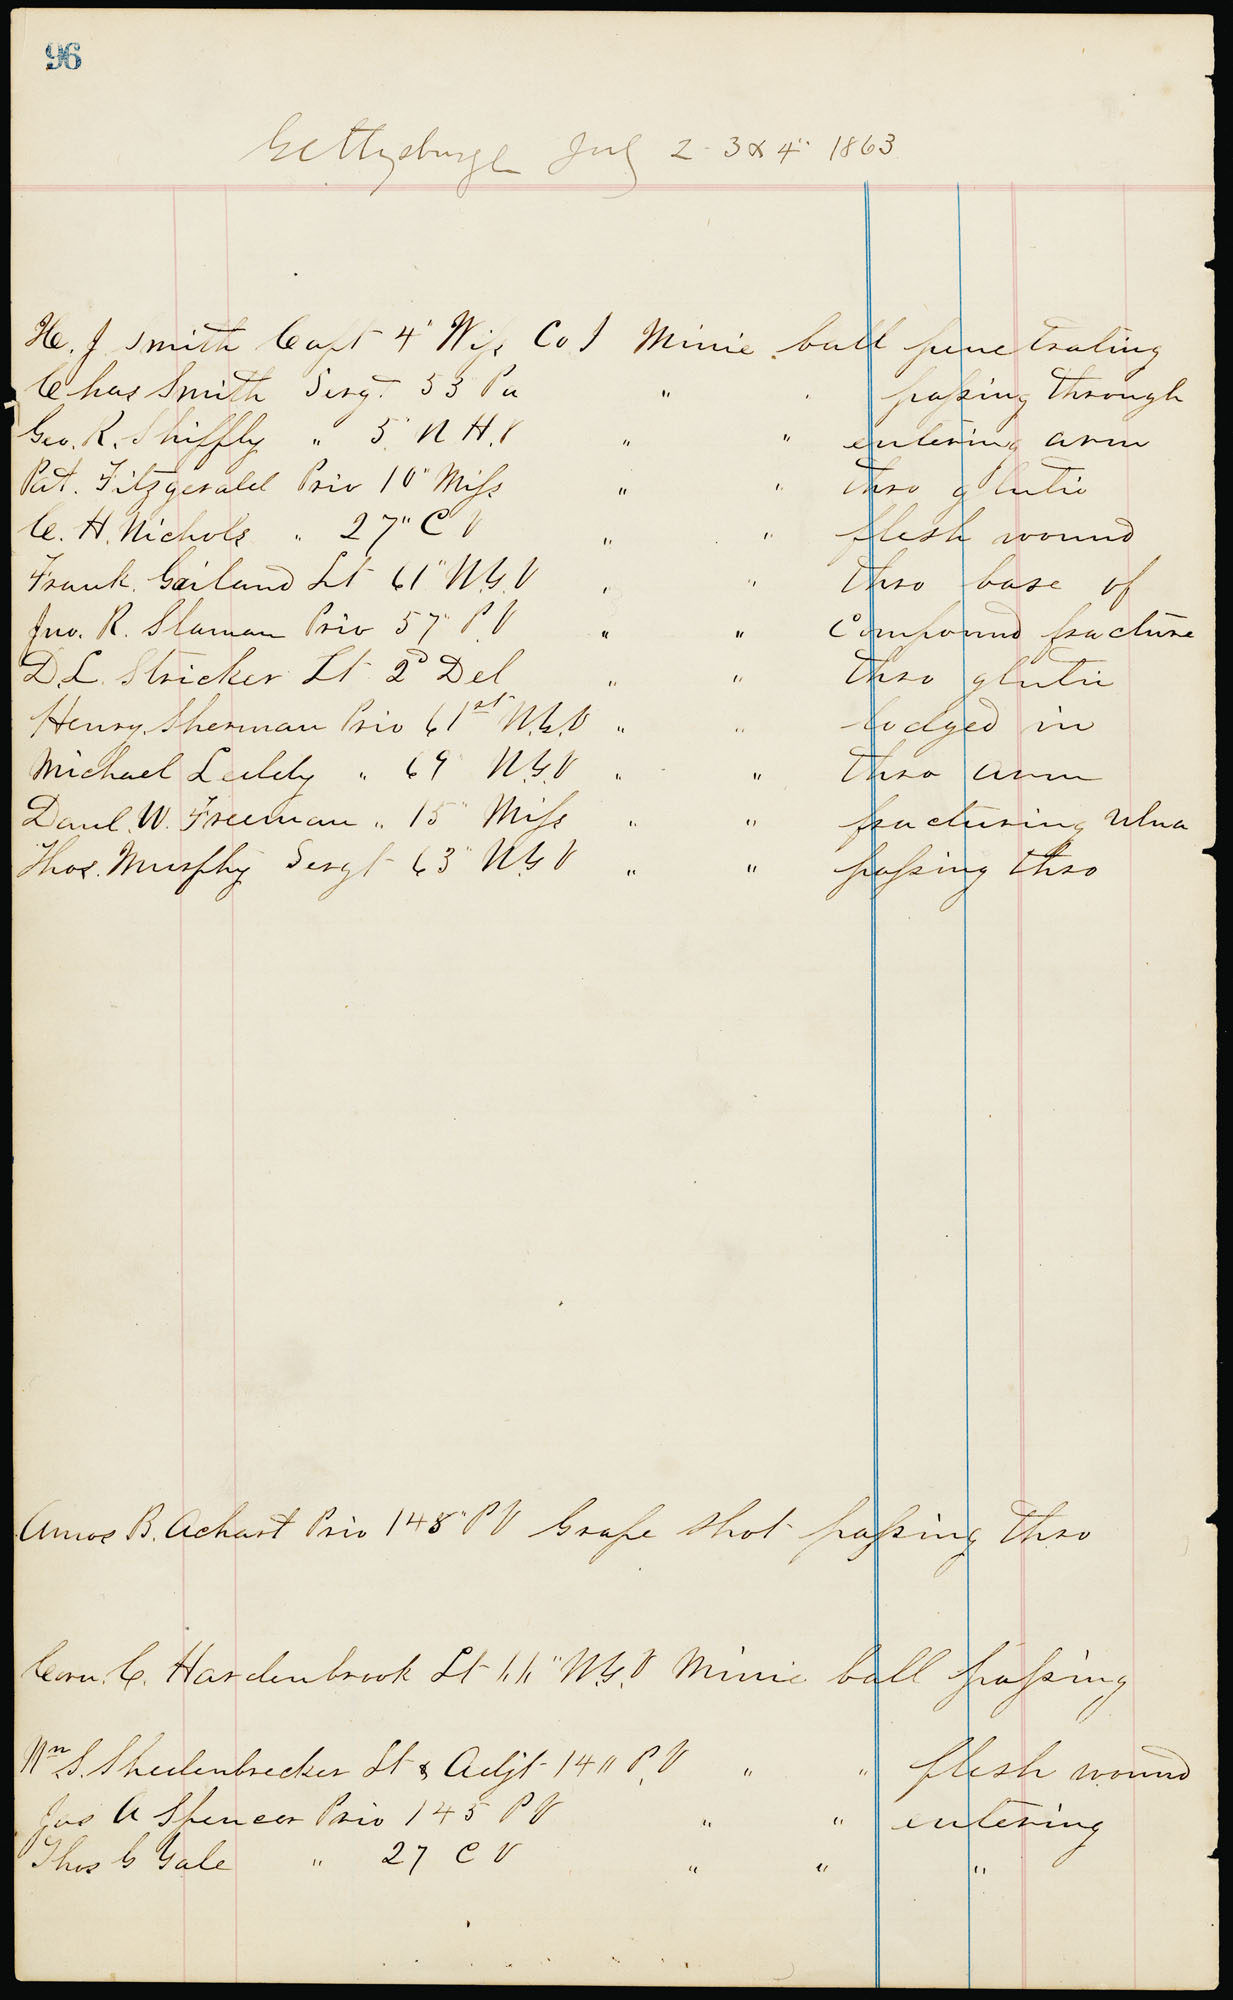 96
Gettysburgh July 2 - 3 & 4" 1863
H. J Smith Capt 4" Wis Co I Minie ball penetrating
Chas Smith Sergt. 53 Pa " " passing through
Geo. R. Shiffly " 5" N H. V " " entering arm
Pat. Fitzgerald Priv 10" Miss " " thro glutie
C. H. Nichols " 27" C V " " flesh wound
Frank. Gailand Lt 61" N.Y.V " " thro base of
Jno. R. Slaman Priv 57" P. V " " Compound fracture
D. L. Stricker Lt 2d Del " " thro glutie
Henry. Sherman Priv 61st N.Y.V " " lodged in
Michael Leddy " 69" N.Y.V " " thro arm
Danl. W. Freeman " 15" Miss " " fracturing Ulna
Thos. Murphy Sergt 63" N.Y V " " passing thro
Amos B. Achart Priv 148" P V Grape shot passing thro
Corn. C. Hardenbrook Lt 66" N.Y. V Minie ball passing
Wm S. Shallenbrecker Lt & Adjt 140 P. V " " flesh wound
Jas A Spencer Priv 145 P V " " entering
Thos G Gale " 27 C V " " "